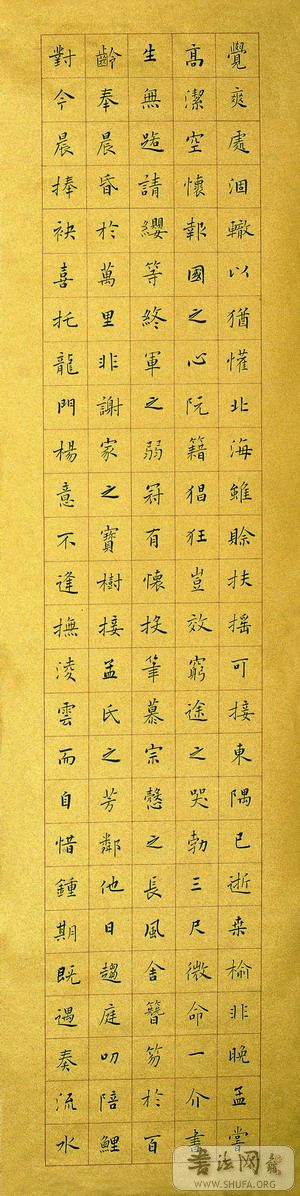 覺爽處涸轍以猶懽北海雖賒扶搖可接東隅已逝桑榆非晚孟嘗
高潔空懷報國之心阮籍猖狂豈效窮途之哭勃三尺微命一介書
生無路請纓等終軍之弱冠有懷投筆慕宗愨之長風舍簪笏於百
齡奉晨昏於萬里非謝家之寶樹接孟氏之芳鄰他日趨庭叨陪鯉
對今晨捧袂喜托龍門楊意不逢撫淩雲而自惜鍾期既遇奏流水
書法网
WWW.SHUFA.ORG